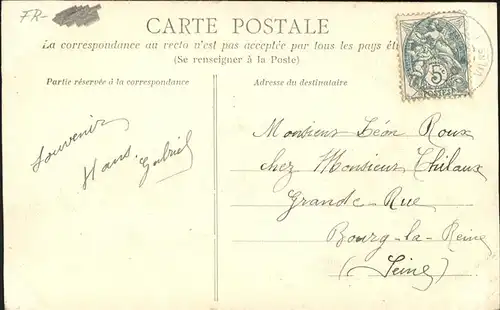 FR-
CARTE POSTALE
La correspondance au recto n'est pas acceptée par tous les pays
(Se renseigner à la Poste)
Partie réservée à la correspondance
Adresse du destinataire
5c
POSTES
Souvenir
Hans. Gabriel
Monsieur Léon Roux
chez Monsieur Thilaux
Grande-Rue
Bourg-la-Reine
(Seine)